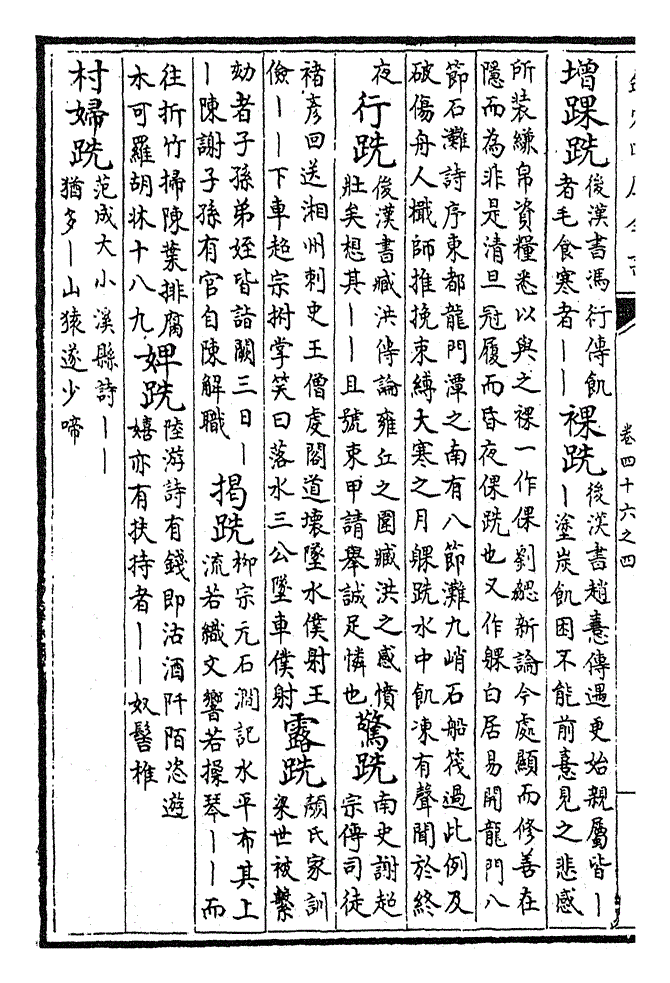 卷四十六之四
增踝跣
後漢書馮衍傳飢
者毛食寒者丨丨
裸跣
後漢書趙憙傳遇更始親屬皆丨
丨塗炭飢困不能前憙見之悲感
所装縑帛資糧悉以與之裸一作倮劉勰新論今處顯而修善在
隱而為非是清旦冠履而昏夜倮跣也又作躶白居易開龍門八
節石灘詩序東都龍門潭之南有八節灘九峭石船筏過此例及
破傷舟人檝師推挽束縛大寒之月躶跣水中飢凍有聲聞於終
夜
行跣
後漢書臧洪傳論雍丘之圍臧洪之感憤
壯矣想其丨丨且號束甲請舉誠足憐也
驚跣
南史謝超
宗傳司徒
褚彥回送湘州刺史王僧虔閣道壞墜水僕射王
儉丨丨下車超宗拊掌笑曰落水三公墜車僕射
露跣
顏氏家訓
梁世被繫
劾者子孫弟姪皆詣闕三日丨
丨陳謝子孫有官自陳解職
揭跣
柳宗元石澗記水平布其上
流若織文響若操琴丨丨而
往折竹掃陳葉排腐
木可羅胡牀十八九
婢跣
陸游詩有錢即沽酒阡陌恣遊
嬉亦有扶持者丨丨奴髻椎
村婦跣
范成大小溪縣詩丨丨
猶多丨山猿遂少啼